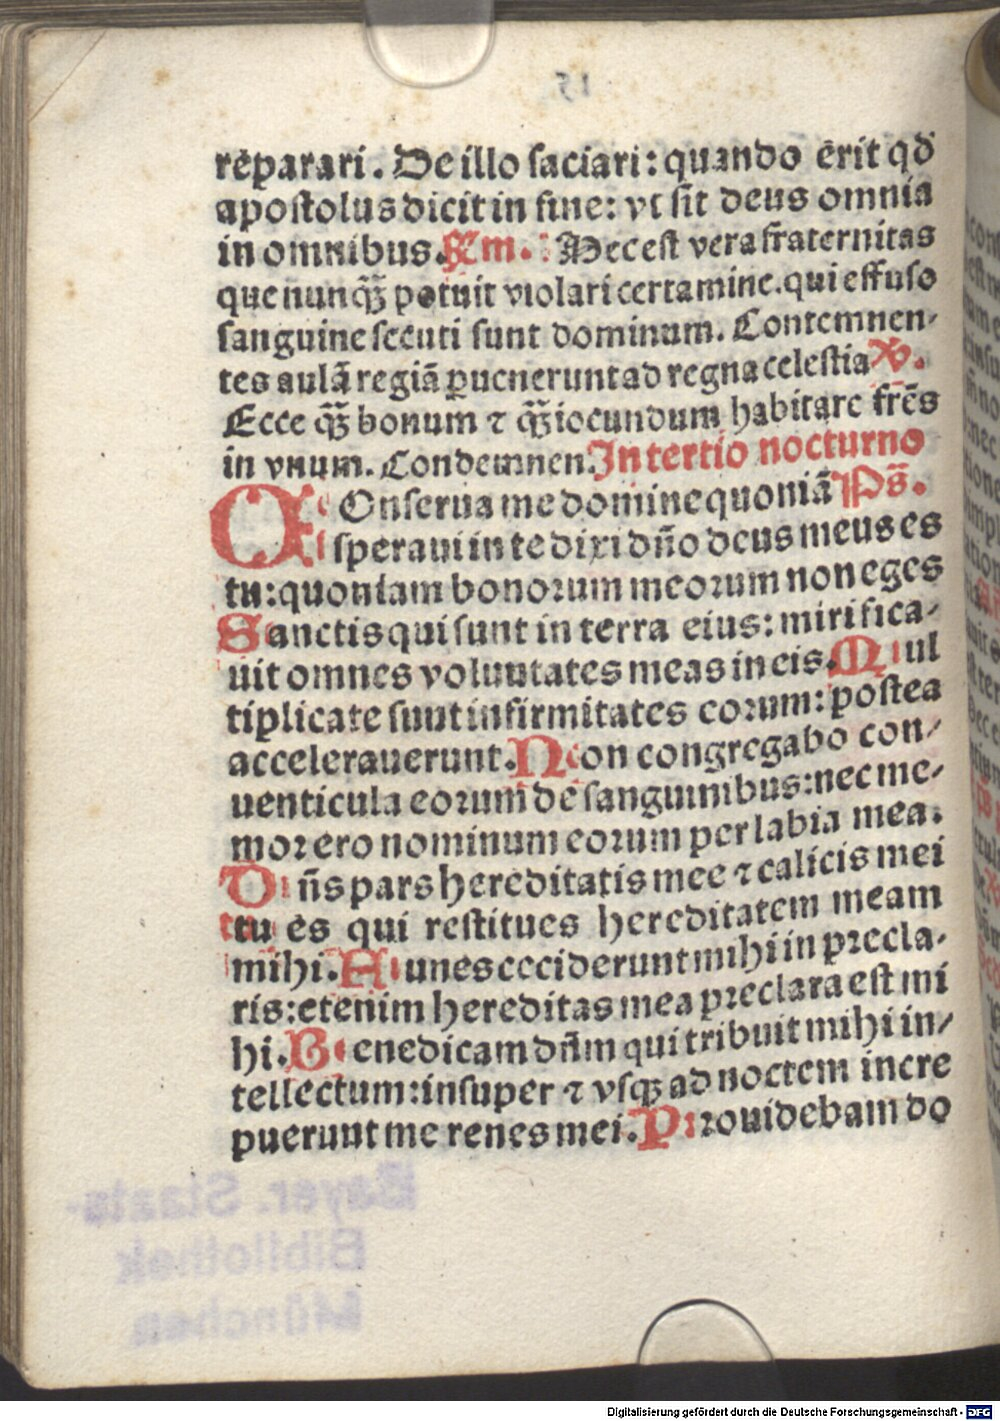 reparari. De illo saciari: quando erit qd̄
apostolus dicit in fine: vt sit deus omnia
in omnibus. R̄m. Hec est vera fraternitas
que nunqꝫ̄ potuit violari certamine. qui effuso
sanguine secuti sunt dominum. Contemnen-
tes aulā regiā ꝑuenerunt ad regna celestia V̄.
Ecce qꝫ̄ bonum ⁊ qꝫ̄ iocundum habitare frēs
in vnum. Condemnen. In tertio nocturno
COnserua me domine quoniā Ps̄.
speraui in te dixi dn̄o deus meus es
tu: quoniam bonoꝛum meoꝛum non eges
Sanctis qui sunt in terra eius: mirifica-
uit omnes voluntates meas in eis. Mul
tiplicate sunt infirmitates eoꝛum: postea
accelerauerunt. Non congregabo con-
uenticula eoꝛum de sanguinibus: nec me-
moꝛ ero nominum eoꝛum per labia mea.
Dn̄s pars hereditatis mee ⁊ calicis mei
tu es qui restitues hereditatem meam
mihi. Funes ceciderunt mihi in pꝛecla-
ris: etenim hereditas mea pꝛeclara est mi
hi. Benedicam dn̄m qui tribuit mihi in-
tellectum: insuper ⁊ vsqꝫ ad noctem incre
puerunt me renes mei. Pꝛouidebam do
Bayer. Staats-
Bibliothek
München
Digitalisierung gefördert durch die Deutsche Forschungsgemeinschaft - DFG